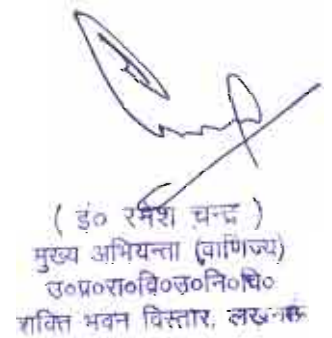 ( इं० रमेश चन्द्र )
मुख्य अभियन्ता (वाणिज्य)
उ०प्र०रा०वि०उ०नि०लि०
शक्ति भवन विस्तार, लखनऊ